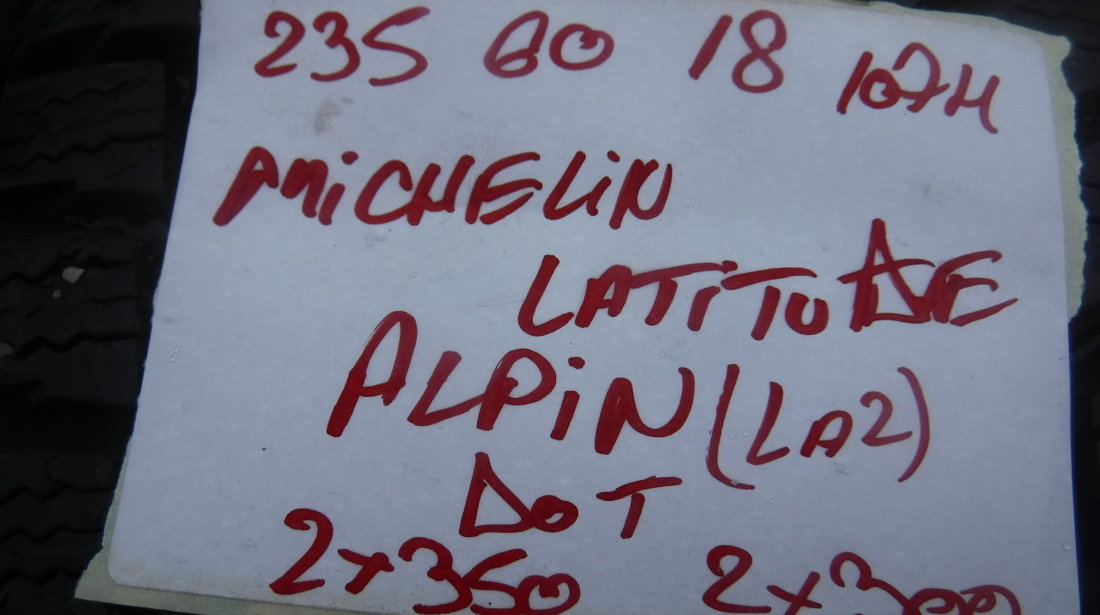 235 60 18 107H
MICHELIN
LATITUDE
ALPIN (LA2)
DOT
2x350 2x300